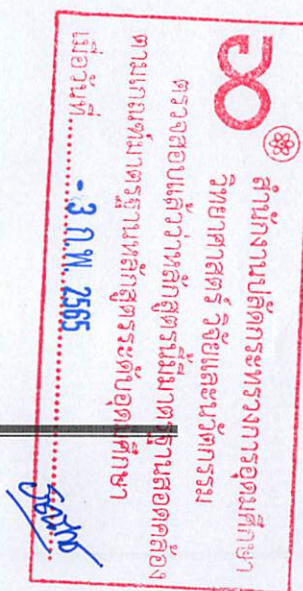 สำนักงานปลัดกระทรวงการอุดมศึกษา
วิทยาศาสตร์ วิจัยและนวัตกรรม
ตรวจสอบแล้วว่าหลักสูตรนี้มีมาตรฐานสอดคล้อง
ตามเกณฑ์มาตรฐานหลักสูตรระดับอุดมศึกษา
เมื่อวันที่ - 3 ก.พ. 2565